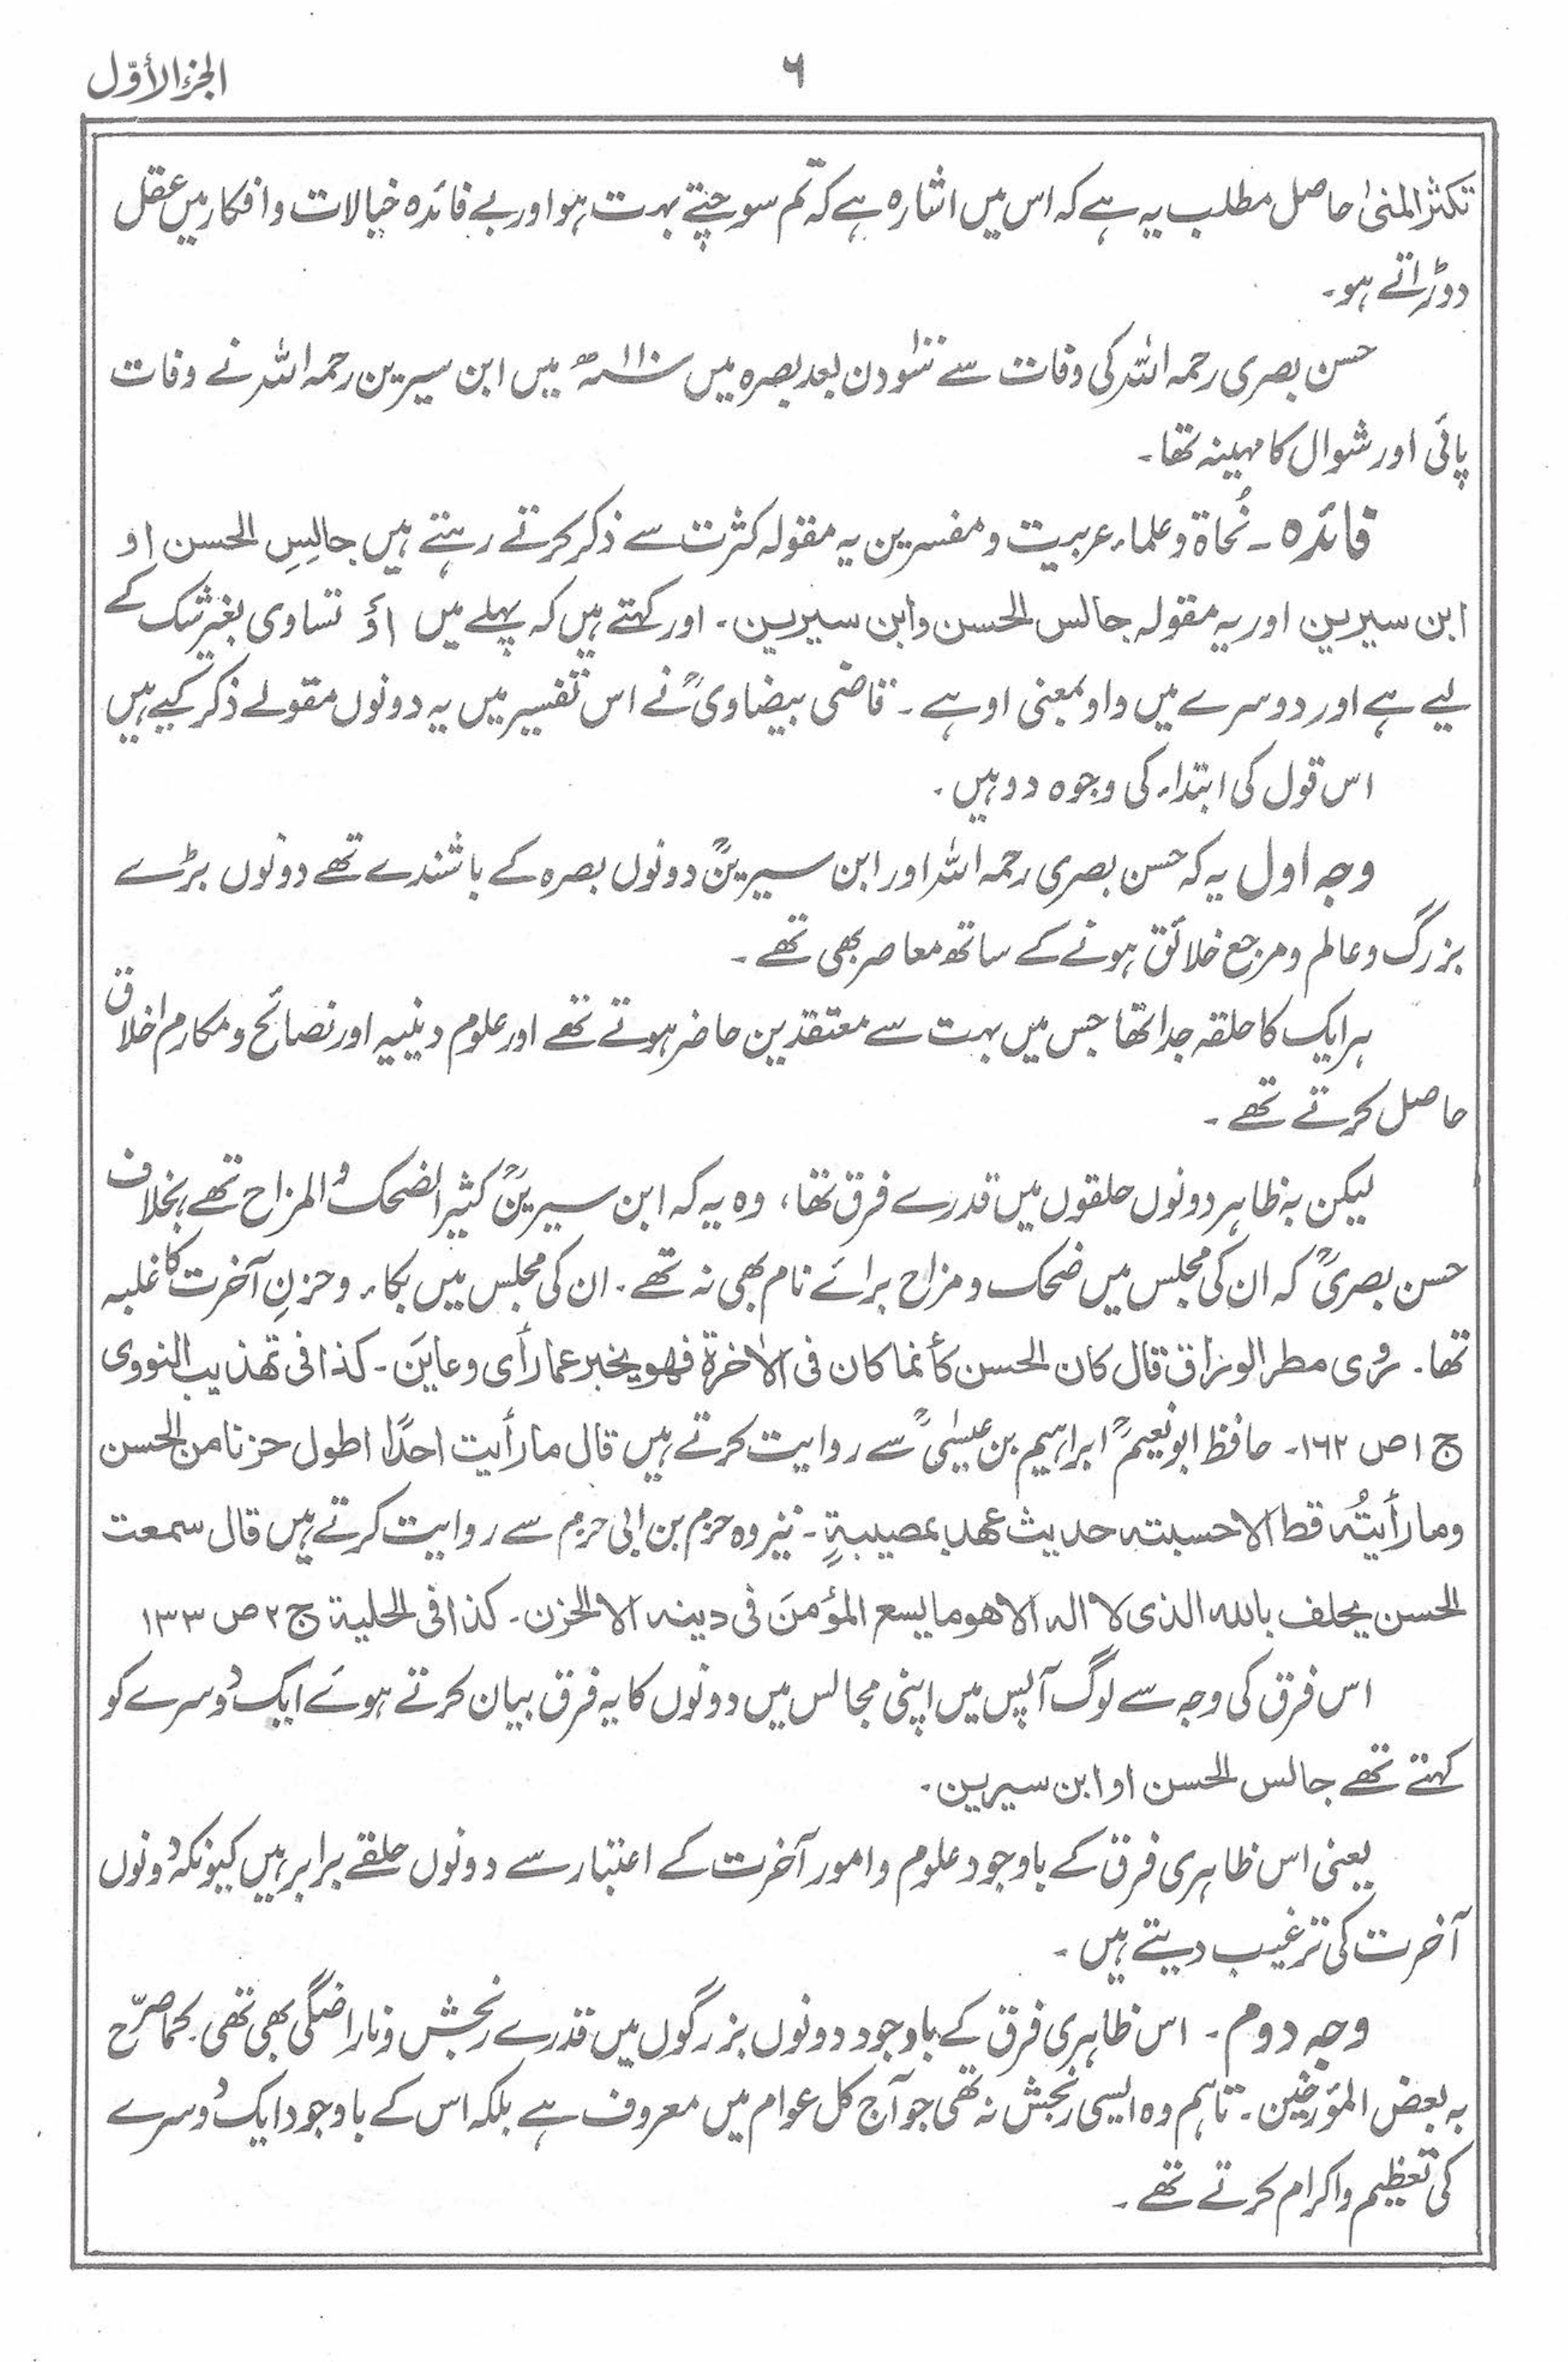 الجزء الأوّل
٦
تکثر المنیٰ حاصل مطلب یہ ہے کہ اس میں اشارہ ہے کہ تم سوچتے بہت ہو اور بے فائدہ خیالات و افکار میں عقل
دوڑاتے ہو۔
حسن بصری رحمہ اللہ کی وفات سے سَو دن بعد بصرہ میں سنہ ۱۱۰ھ میں ابن سیرین رحمہ اللہ نے وفات
پائی اور شوال کا مہینہ تھا۔
فائدہ ۔ نُحاۃ و علماء عربیت و مفسرین یہ مقولہ کثرت سے ذکر کرتے رہتے ہیں جالِسِ الحسن او
ابن سیرین اور یہ مقولہ جالس الحسن وابن سیرین۔ اور کہتے ہیں کہ پہلے میں اَوْ تساوی بغیر شک کے
لیے ہے اور دوسرے میں واو بمعنی او ہے ۔ قاضی بیضاویؒ نے اس تفسیر میں یہ دونوں مقولے ذکر کیے ہیں
اس قول کی ابتداء کی وجوہ دو ہیں ۔
وجہ اول یہ کہ حسن بصری رحمہ اللہ اور ابن سیرینؒ دونوں بصرہ کے باشندے تھے دونوں بڑے
بزرگ و عالم و مرجع خلائق ہونے کے ساتھ معاصر بھی تھے ۔
ہر ایک کا حلقہ جدا تھا جس میں بہت سے معتقدین حاضر ہوتے تھے اور علوم دینیہ اور نصائح و مکارم اخلاق
حاصل کرتے تھے ۔
لیکن بہ ظاہر دونوں حلقوں میں قدرے فرق تھا، وہ یہ کہ ابن سیرینؒ کثیر الضحک والمزاح تھے بخلاف
حسن بصریؒ کہ ان کی مجلس میں ضحک و مزاح برائے نام بھی نہ تھے ۔ ان کی مجلس میں بکاء و حزنِ آخرت کا غلبہ
تھا ۔ رُوی مطر الوراق قال کان الحسن کأنما کان فی الاٰخرۃ فھو یخبر عما رأی و عایَن ۔ کذا فی تھذیب النووی
ج ۱ ص ۱۶۲۔ حافظ ابو نعیمؒ ابراہیم بن عیسیٰؒ سے روایت کرتے ہیں قال ما رأیت احدًا اطول حزنا من الحسن
وما رأیتُہ قط الا حسبتہ حدیث عھد بمصیبۃٍ ۔ نیز وہ حزم بن ابی حزم سے روایت کرتے ہیں قال سمعت
الحسن یحلف باللہ الذی لا الہ الا ھو ما یسع المؤمنَ فی دینہ الا الحزن ۔ کذا فی الحلیۃ ج ۲ ص ۱۳۳
اس فرق کی وجہ سے لوگ آپس میں اپنی مجالس میں دونوں کا یہ فرق بیان کرتے ہوئے ایک دوسرے کو
کہتے تھے جالس الحسن او ابن سیرین ۔
یعنی اس ظاہری فرق کے باوجود علوم و امور آخرت کے اعتبار سے دونوں حلقے برابر ہیں کیونکہ دونوں
آخرت کی ترغیب دیتے ہیں ۔
وجہ دوم ۔ اس ظاہری فرق کے باوجود دونوں بزرگوں میں قدرے رنجش و ناراضگی بھی تھی کما صرّح
بہ بعض المؤرخین ۔ تاہم وہ ایسی رنجش نہ تھی جو آج کل عوام میں معروف ہے بلکہ اس کے باوجود ایک دوسرے
کی تعظیم و اکرام کرتے تھے ۔